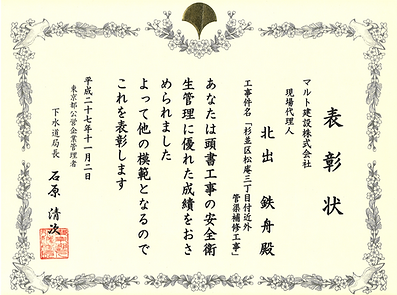 表彰状
マルト建設株式会社
現場代理人
北出 鉄舟 殿
工事件名「杉並区松庵三丁目付近外
管渠補修工事」
あなたは頭書工事の安全衛
生管理に優れた成績をおさ
められました
よって他の模範となるので
これを表彰します
平成二十七年十一月二日
東京都公営企業管理者
下水道局長 石原 清次